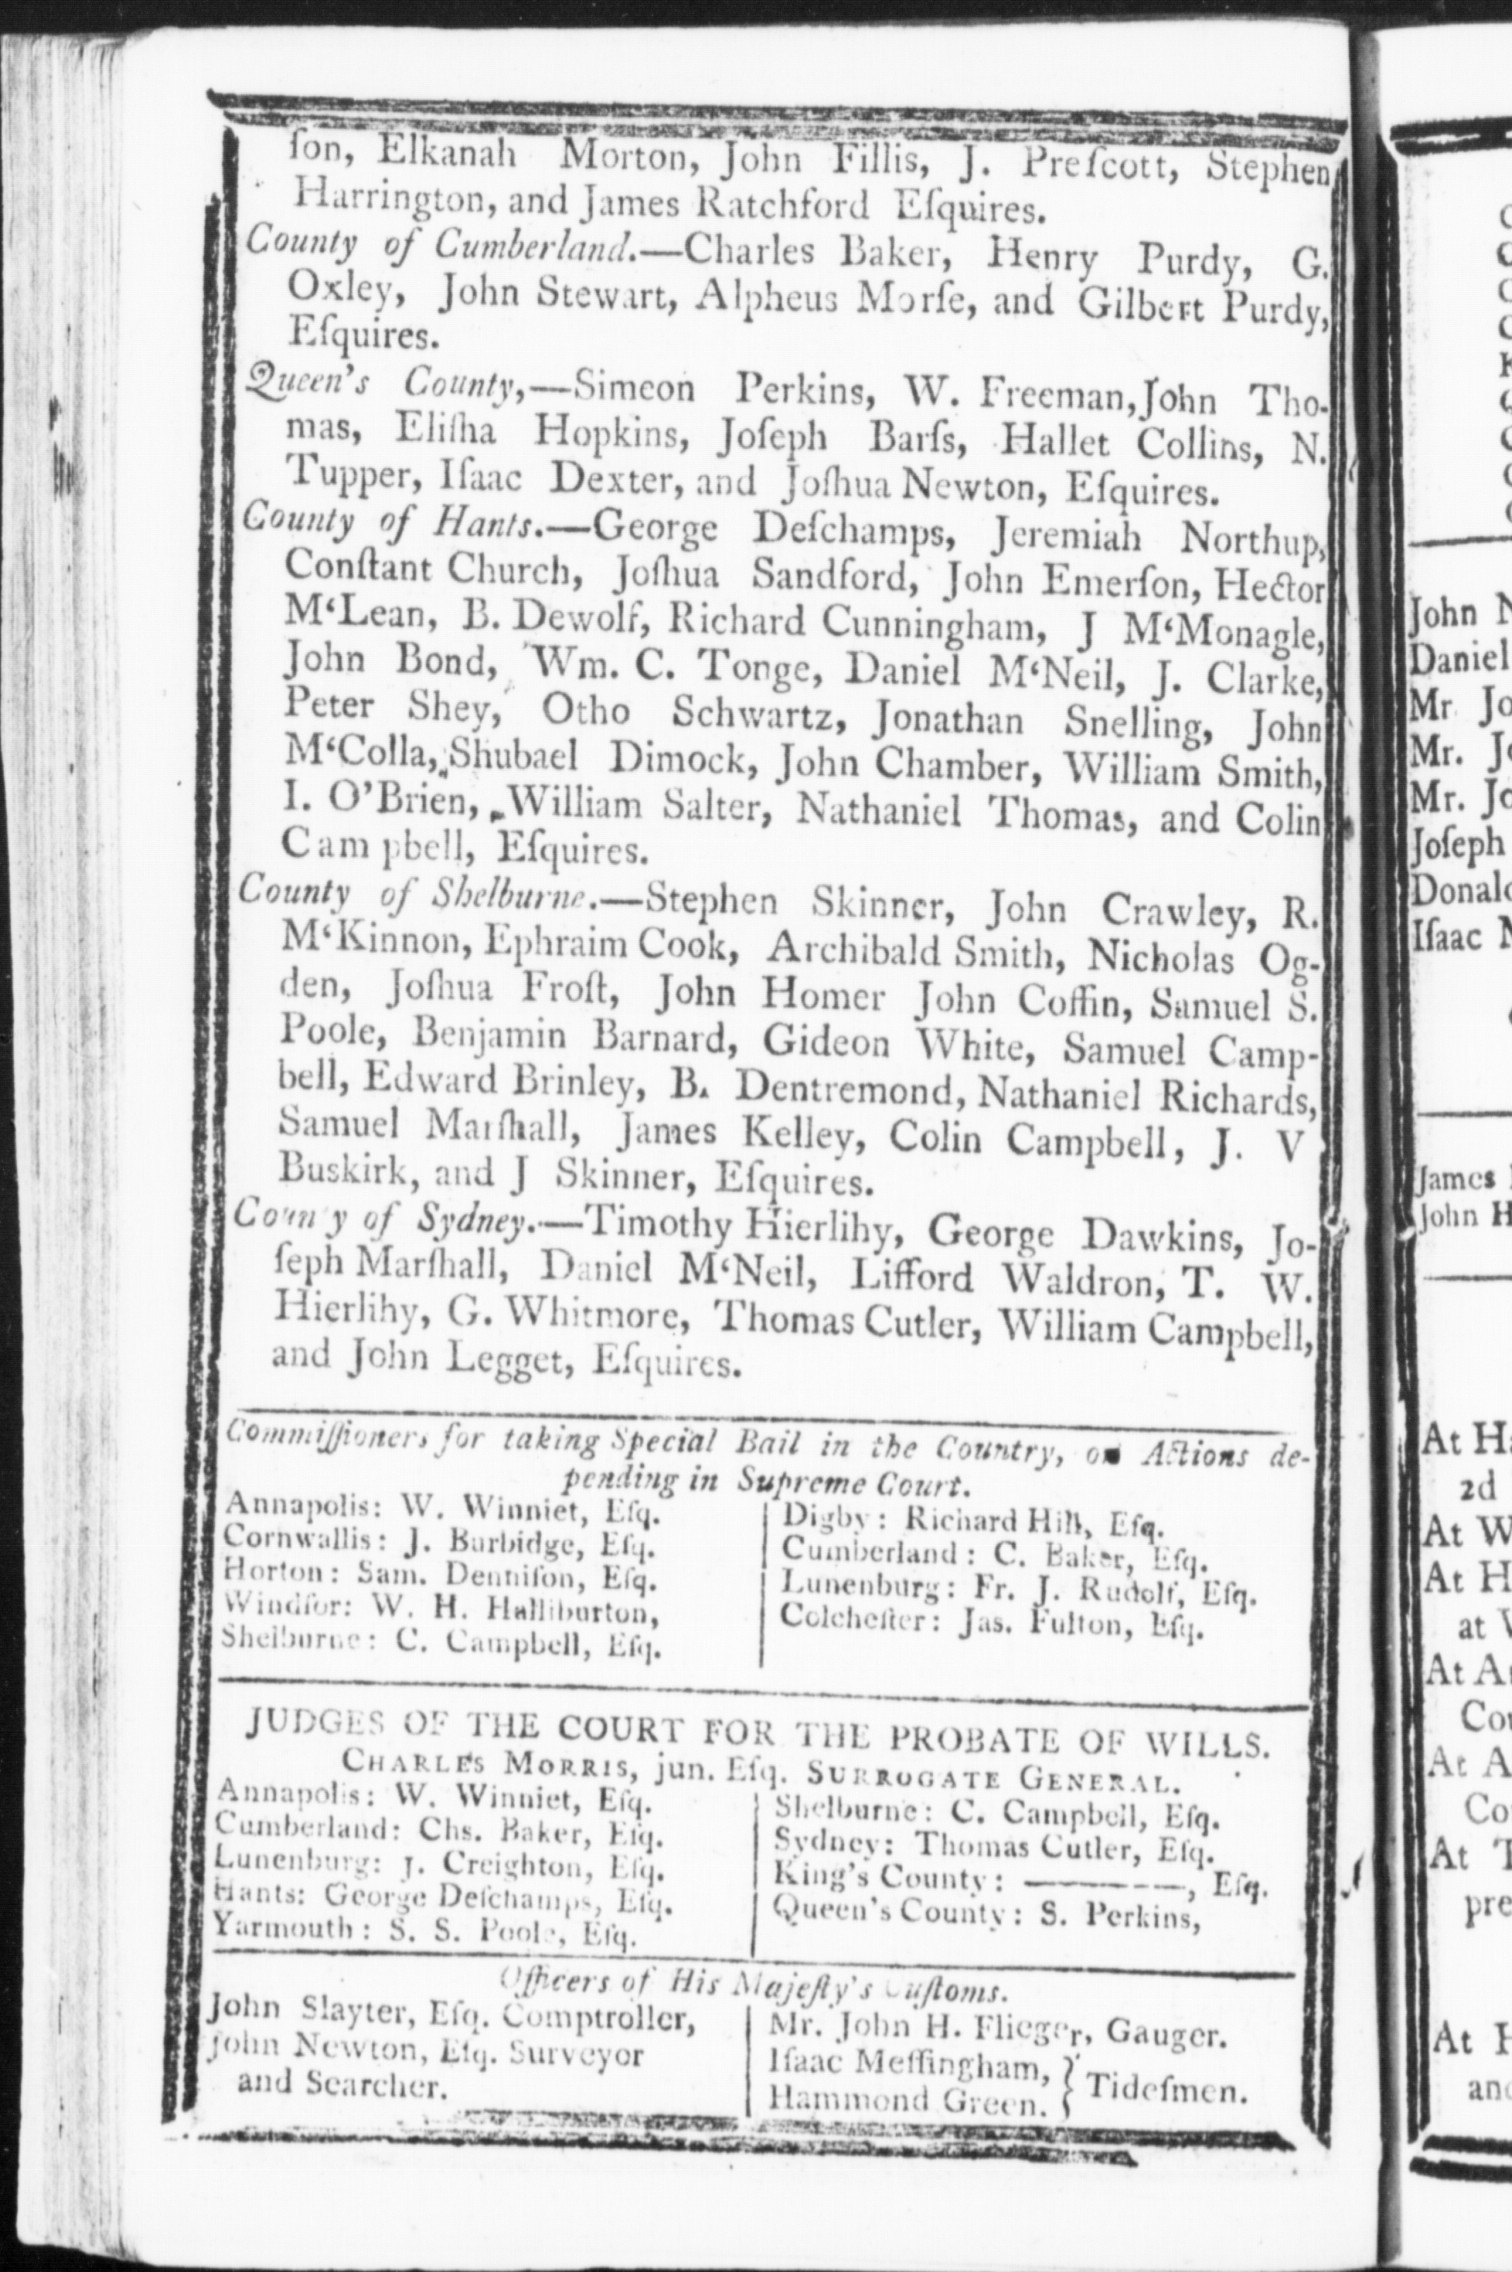 ſon, Elkanah Morton, John Fillis, J. Preſcott, Stephen
Harrington, and James Ratchford Eſquires.
County of Cumberland.—Charles Baker, Henry Purdy, G.
Oxley, John Stewart, Alpheus Morſe, and Gilbert Purdy,
Eſquires.
Queen's County,—Simeon Perkins, W. Freeman, John Tho-
mas, Eliſha Hopkins, Joſeph Barſs, Hallet Collins, N.
Tupper, Iſaac Dexter, and Joſhua Newton, Eſquires.
County of Hants.—George Deſchamps, Jeremiah Northup,
Conſtant Church, Joſhua Sandford, John Emerſon, Hector
M‘Lean, B. Dewolf, Richard Cunningham, J M‘Monagle,
John Bond, Wm. C. Tonge, Daniel M‘Neil, J. Clarke,
Peter Shey, Otho Schwartz, Jonathan Snelling, John
M‘Colla, Shubael Dimock, John Chamber, William Smith,
I. O’Brien, William Salter, Nathaniel Thomas, and Colin
Campbell, Eſquires.
County of Shelburne.—Stephen Skinner, John Crawley, R.
M‘Kinnon, Ephraim Cook, Archibald Smith, Nicholas Og-
den, Joſhua Froſt, John Homer John Coffin, Samuel S.
Poole, Benjamin Barnard, Gideon White, Samuel Camp-
bell, Edward Brinley, B. Dentremond, Nathaniel Richards,
Samuel Marſhall, James Kelley, Colin Campbell, J. V
Buskirk, and J Skinner, Eſquires.
County of Sydney.—Timothy Hierlihy, George Dawkins, Jo-
ſeph Marſhall, Daniel M‘Neil, Lifford Waldron, T. W.
Hierlihy, G. Whitmore, Thomas Cutler, William Campbell,
and John Legget, Eſquires.
Commiſſioners for taking Special Bail in the Country, on Actions de-
pending in Supreme Court.
Annapolis: W. Winniet, Eſq.
Cornwallis: J. Burbidge, Eſq.
Horton: Sam. Denniſon, Eſq.
Windſor: W. H. Halliburton,
Shelburne: C. Campbell, Eſq.
Digby: Richard Hill, Eſq.
Cumberland: C. Baker, Eſq.
Lunenburg: Fr. J. Rudolf, Eſq.
Colcheſter: Jas. Fulton, Eſq.
JUDGES OF THE COURT FOR THE PROBATE OF WILLS.
CHARLES MORRIS, jun. Eſq. SURROGATE GENERAL.
Annapolis: W. Winniet, Eſq.
Cumberland: Chs. Baker, Eſq.
Lunenburg: J. Creighton, Eſq.
Hants: George Deſchamps, Eſq.
Yarmouth: S. S. Poole, Eſq.
Shelburne: C. Campbell, Eſq.
Sydney: Thomas Cutler, Eſq.
King's County: ————, Eſq.
Queen's County: S. Perkins,
Officers of His Majeſty's Cuſtoms.
John Slayter, Eſq. Comptroller,
John Newton, Eſq. Surveyor
and Searcher.
Mr. John H. Flieger, Gauger.
Iſaac Meſſingham, }
Hammond Green. } Tideſmen.
John
Daniel
Mr Jo
Mr. Jo
Mr. Jo
Joſeph
Donald
Iſaac
James
John H
At Ha
2d
At W
At H
at
At A
Co
At A
Co
At T
pre
At H
and